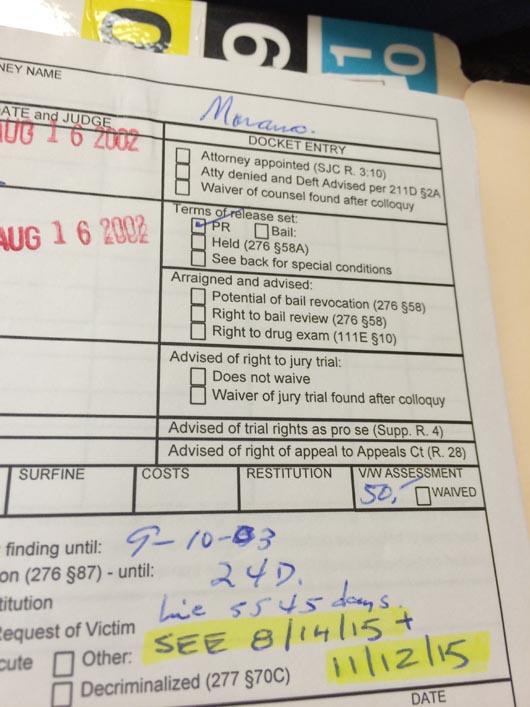 9 1 0
NEY NAME
ATE and JUDGE
AUG 16 2002
DOCKET ENTRY
Attorney appointed (SJC R. 3:10)
Atty denied and Deft Advised per 211D §2A
Waiver of counsel found after colloquy
Terms of release set:
PR Bail:
AUG 16 2002
Held (276 §58A)
See back for special conditions
Arraigned and advised:
Potential of bail revocation (276 §58)
Right to bail review (276 §58)
Right to drug exam (111E §10)
Advised of right to jury trial:
Does not waive
Waiver of jury trial found after colloquy
Advised of trial rights as pro se (Supp. R. 4)
Advised of right of appeal to Appeals Ct (R. 28)
SURFINE COSTS RESTITUTION V/W ASSESSMENT
50. WAIVED
finding until: 9-10-03
on (276 §87) - until: 24D.
titution Lic 5545 days.
Request of Victim SEE 8/14/15 +
cute Other: 11/12/15
Decriminalized (277 §70C)
DATE